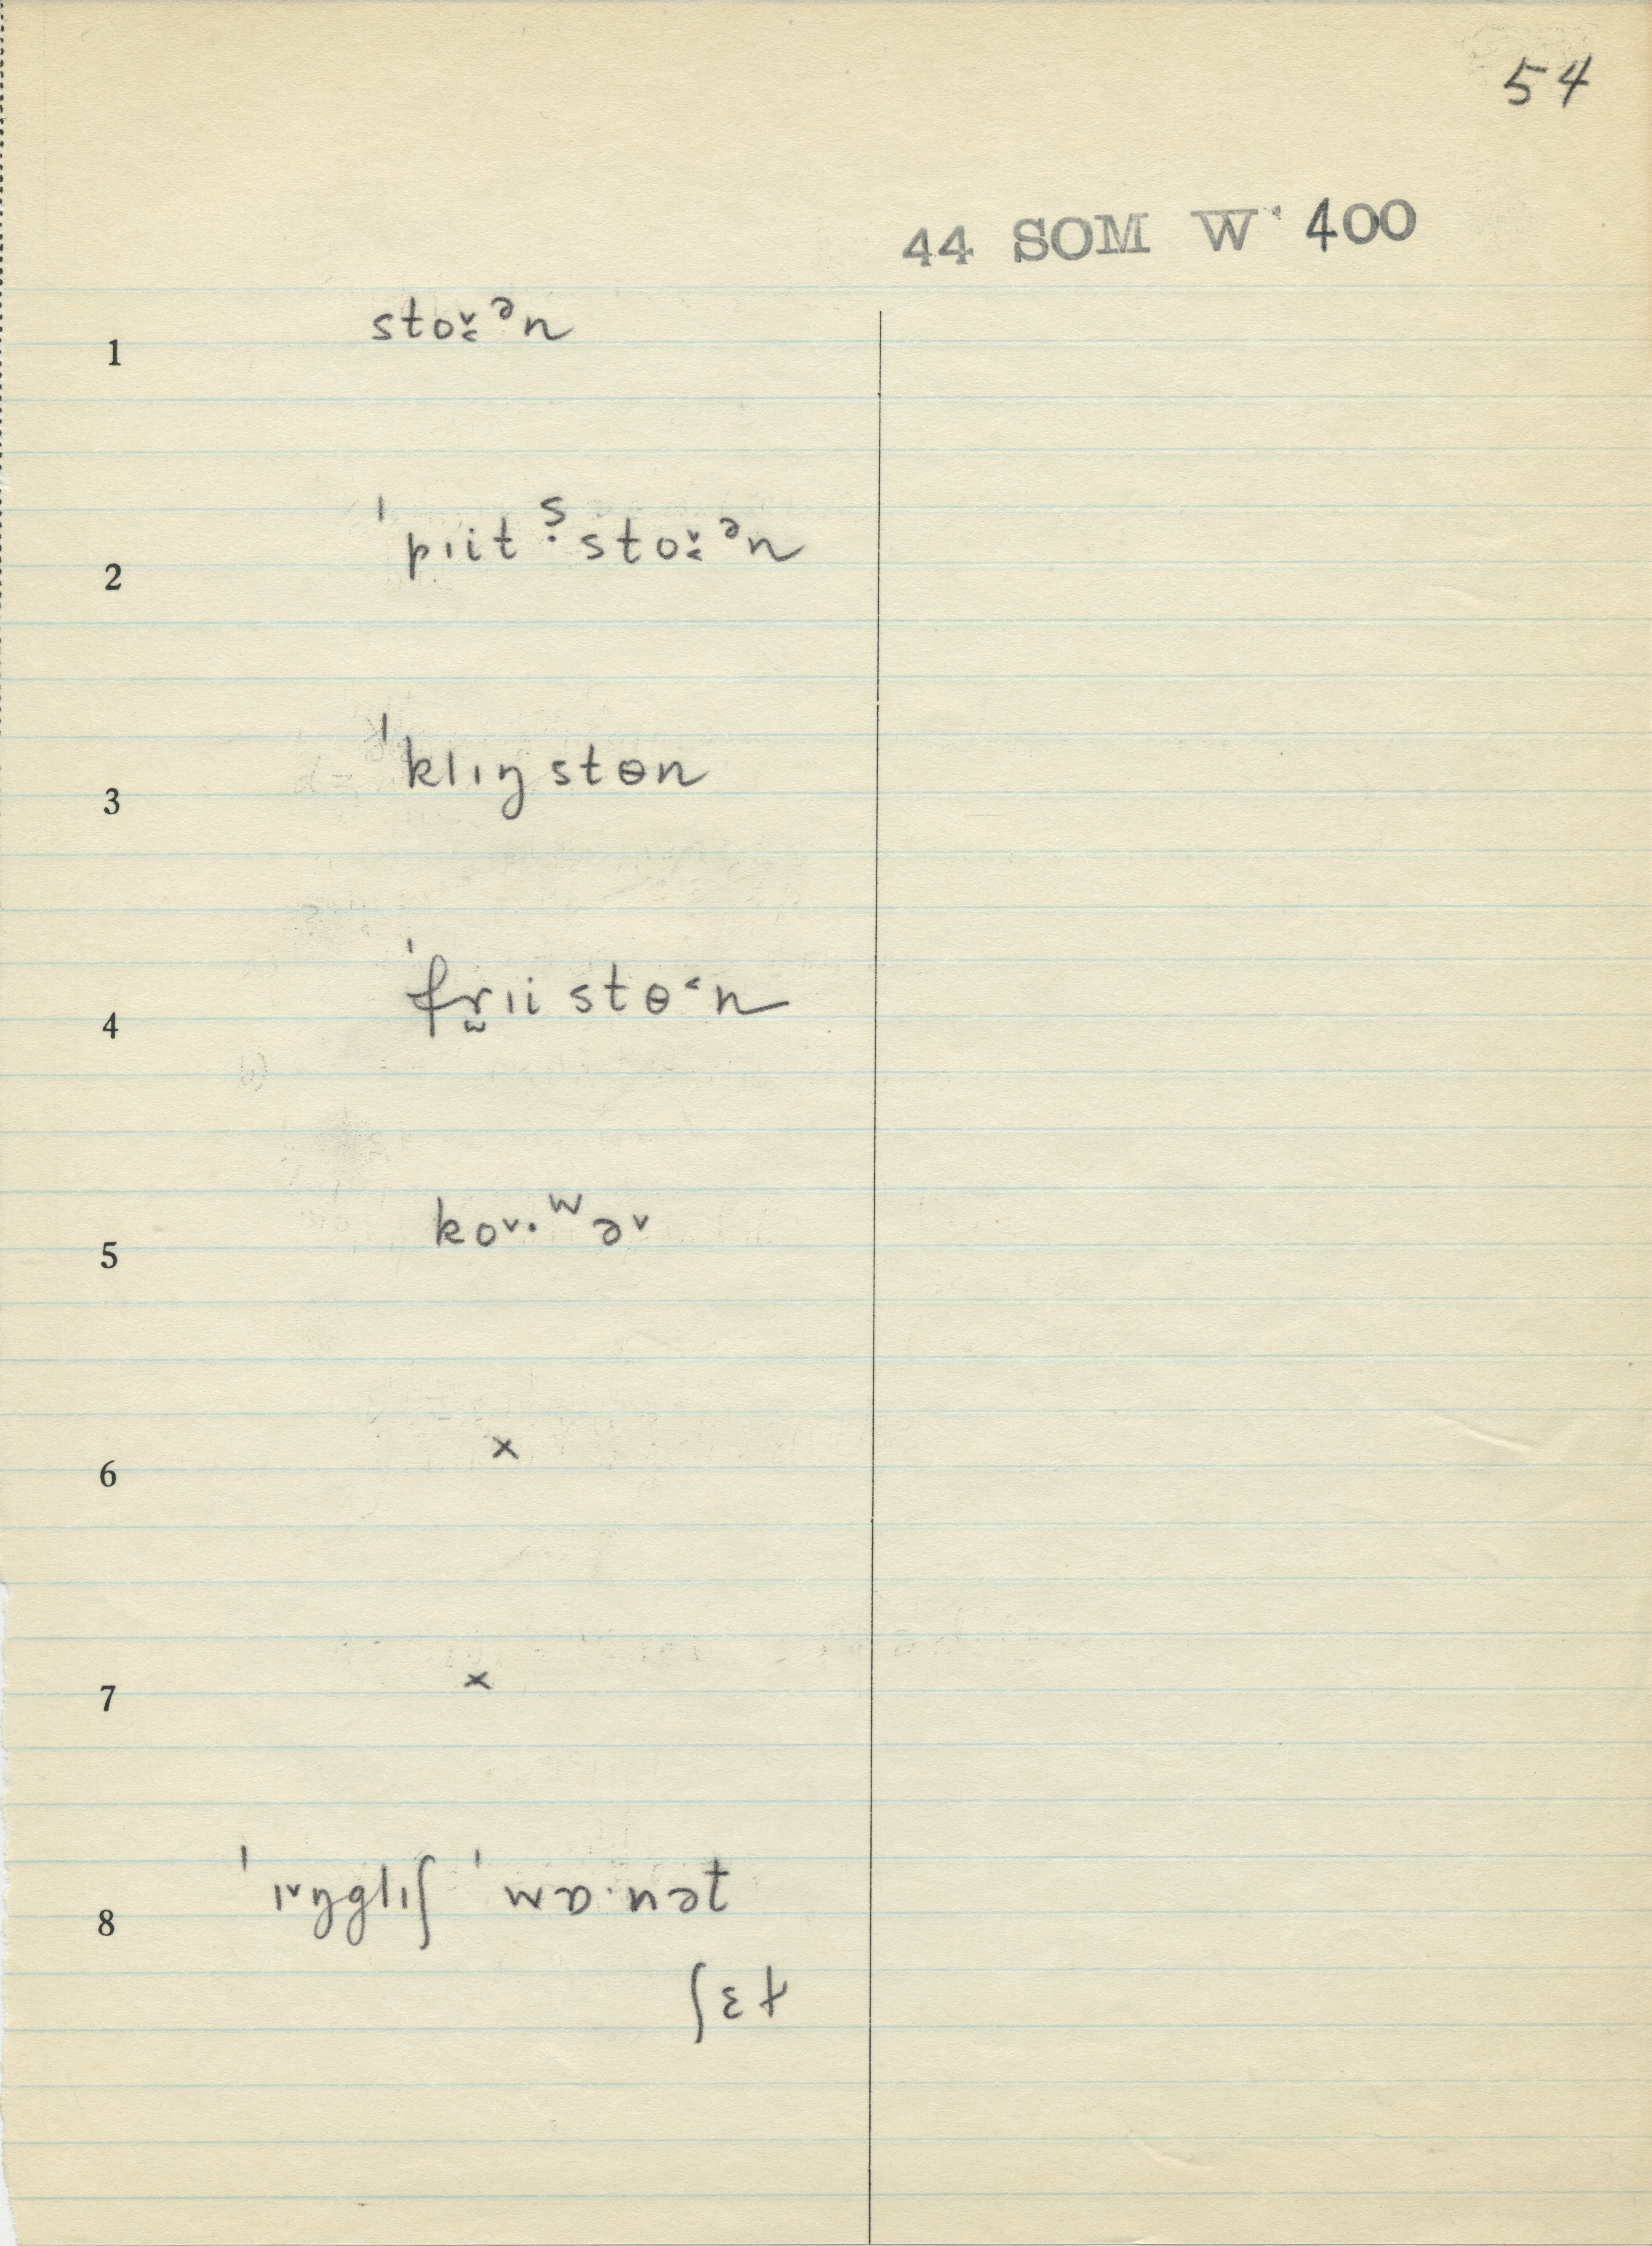 54
44 SOM W 400
1 sto˯꞉ᵊn
2 ˈpɪitˢ̣sto˯꞉ᵊn
3 ˈklɪŋstɵn
4 ˈfr̯ɪistɵ˂n
5 ko˅·ʷə˅
6 ×
7 ×
8 ˈɪ˅ŋglɪʃ ˈwɒ·nət
ʃɛɫ